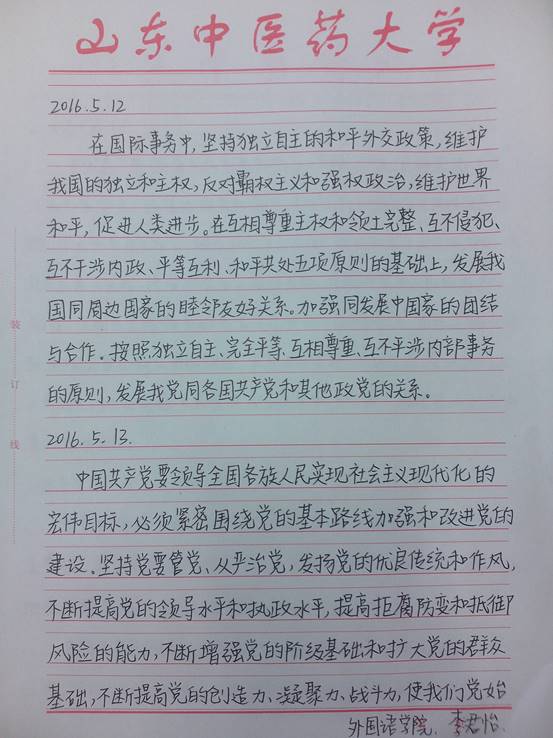 山东中医药大学
2016.5.12
在国际事务中,坚持独立自主的和平外交政策,维护
我国的独立和主权,反对霸权主义和强权政治,维护世界
和平,促进人类进步。在互相尊重主权和领土完整、互不侵犯、
互不干涉内政、平等互利、和平共处五项原则的基础上,发展我
国同周边国家的睦邻友好关系。加强同发展中国家的团结
与合作.按照独立自主、完全平等、互相尊重、互不干涉内部事务
的原则,发展我党同各国共产党和其他政党的关系。
2016.5.13.
中国共产党要领导全国各族人民实现社会主义现代化的
宏伟目标,必须紧密围绕党的基本路线加强和改进党的
建设.坚持党要管党、从严治党,发扬党的优良传统和作风,
不断提高党的领导水平和执政水平,提高拒腐防变和抵御
风险的能力,不断增强党的阶级基础和扩大党的群众
基础,不断提高党的创造力、凝聚力、战斗力,使我们党始
外国语学院.李君怡.
装
订
线